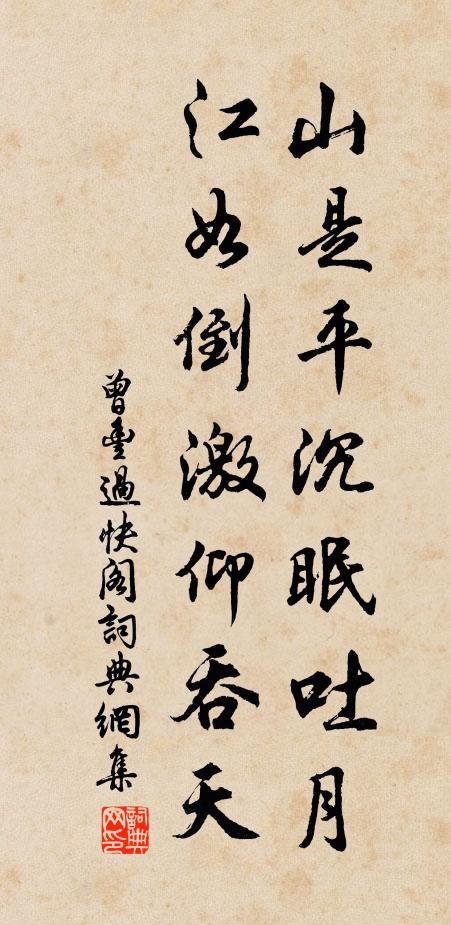 山是平沉眠吐月
江如倒激仰吞天
曾豐過快閣詞典網集
詞典網印